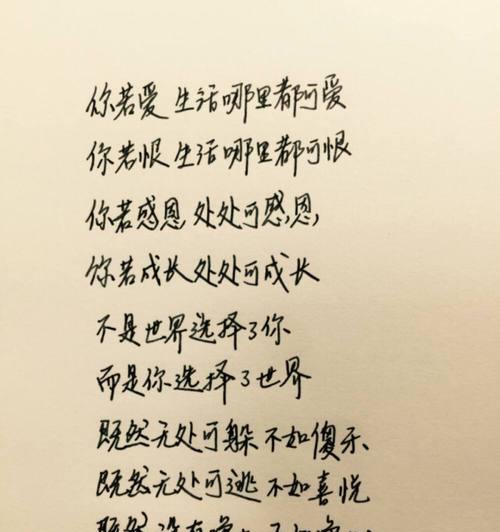 你若爱 生活哪里都可爱
你若恨 生活哪里都可恨
你若感恩 处处可感恩,
你若成长 处处可成长
不是世界选择了你
而是你选择了世界
既然无处可躲 不如傻乐、
既然无处可逃 不如喜悦
既然没有